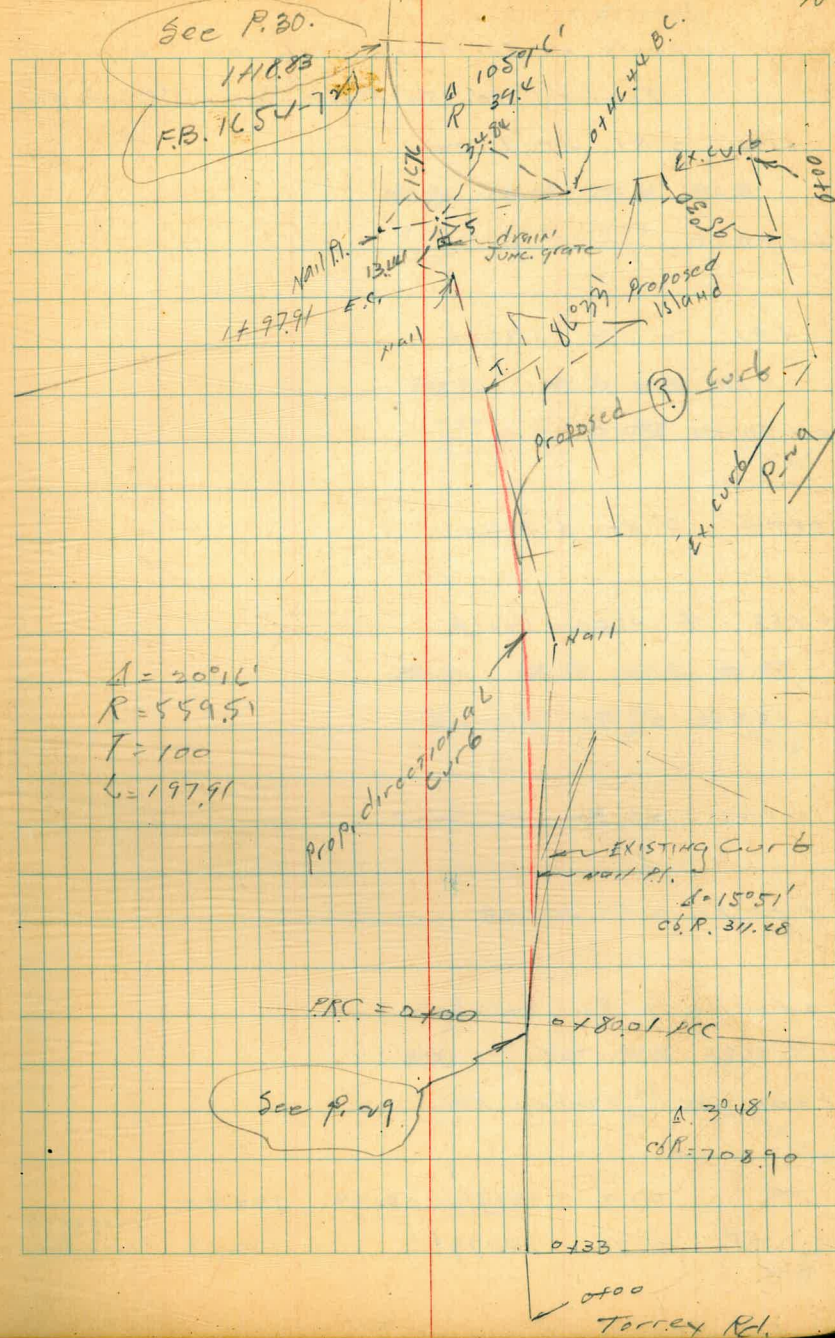 See P.30.
1+18.83
F.B. 1654-721
Δ 105°16'
R 39.4
34.84
0+46.44 B.C.
Ex. curb
0+00
95°30'
16.76
5
drain
Junc. grate
Nail P.I.
13.44
E.C.
1+97.91
Nail
Proposed
Island
86°33'
T.
Proposed ? Curb
Ex. curb
P-29
Nail
Δ = 20°16'
R = 559.51
T = 100
L = 197.91
Prop. directional
Curb
EXISTING Curb
Nail P.I.
Δ = 15°51'
cb. R. 311.48
P.R.C. = 0+00
0+80.01 PCC
See P. 29
Δ 3°48'
cb R = 708.90
0+33
0+00
Torrey Rd.